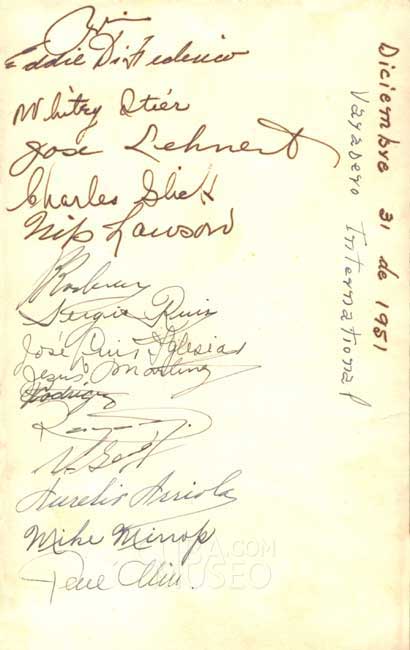 Eddie DiFederico
Whitey Stier
Jose Lehnert
Charles Shek
Nip Lawson
Sergio Ruiz
José Luis Iglesias
Jezus Martinez
Rodriguez
Aurelio Arriola
Mike Minnop
Diciembre 31 de 1951
Vayasero International
.COM
MUSEO